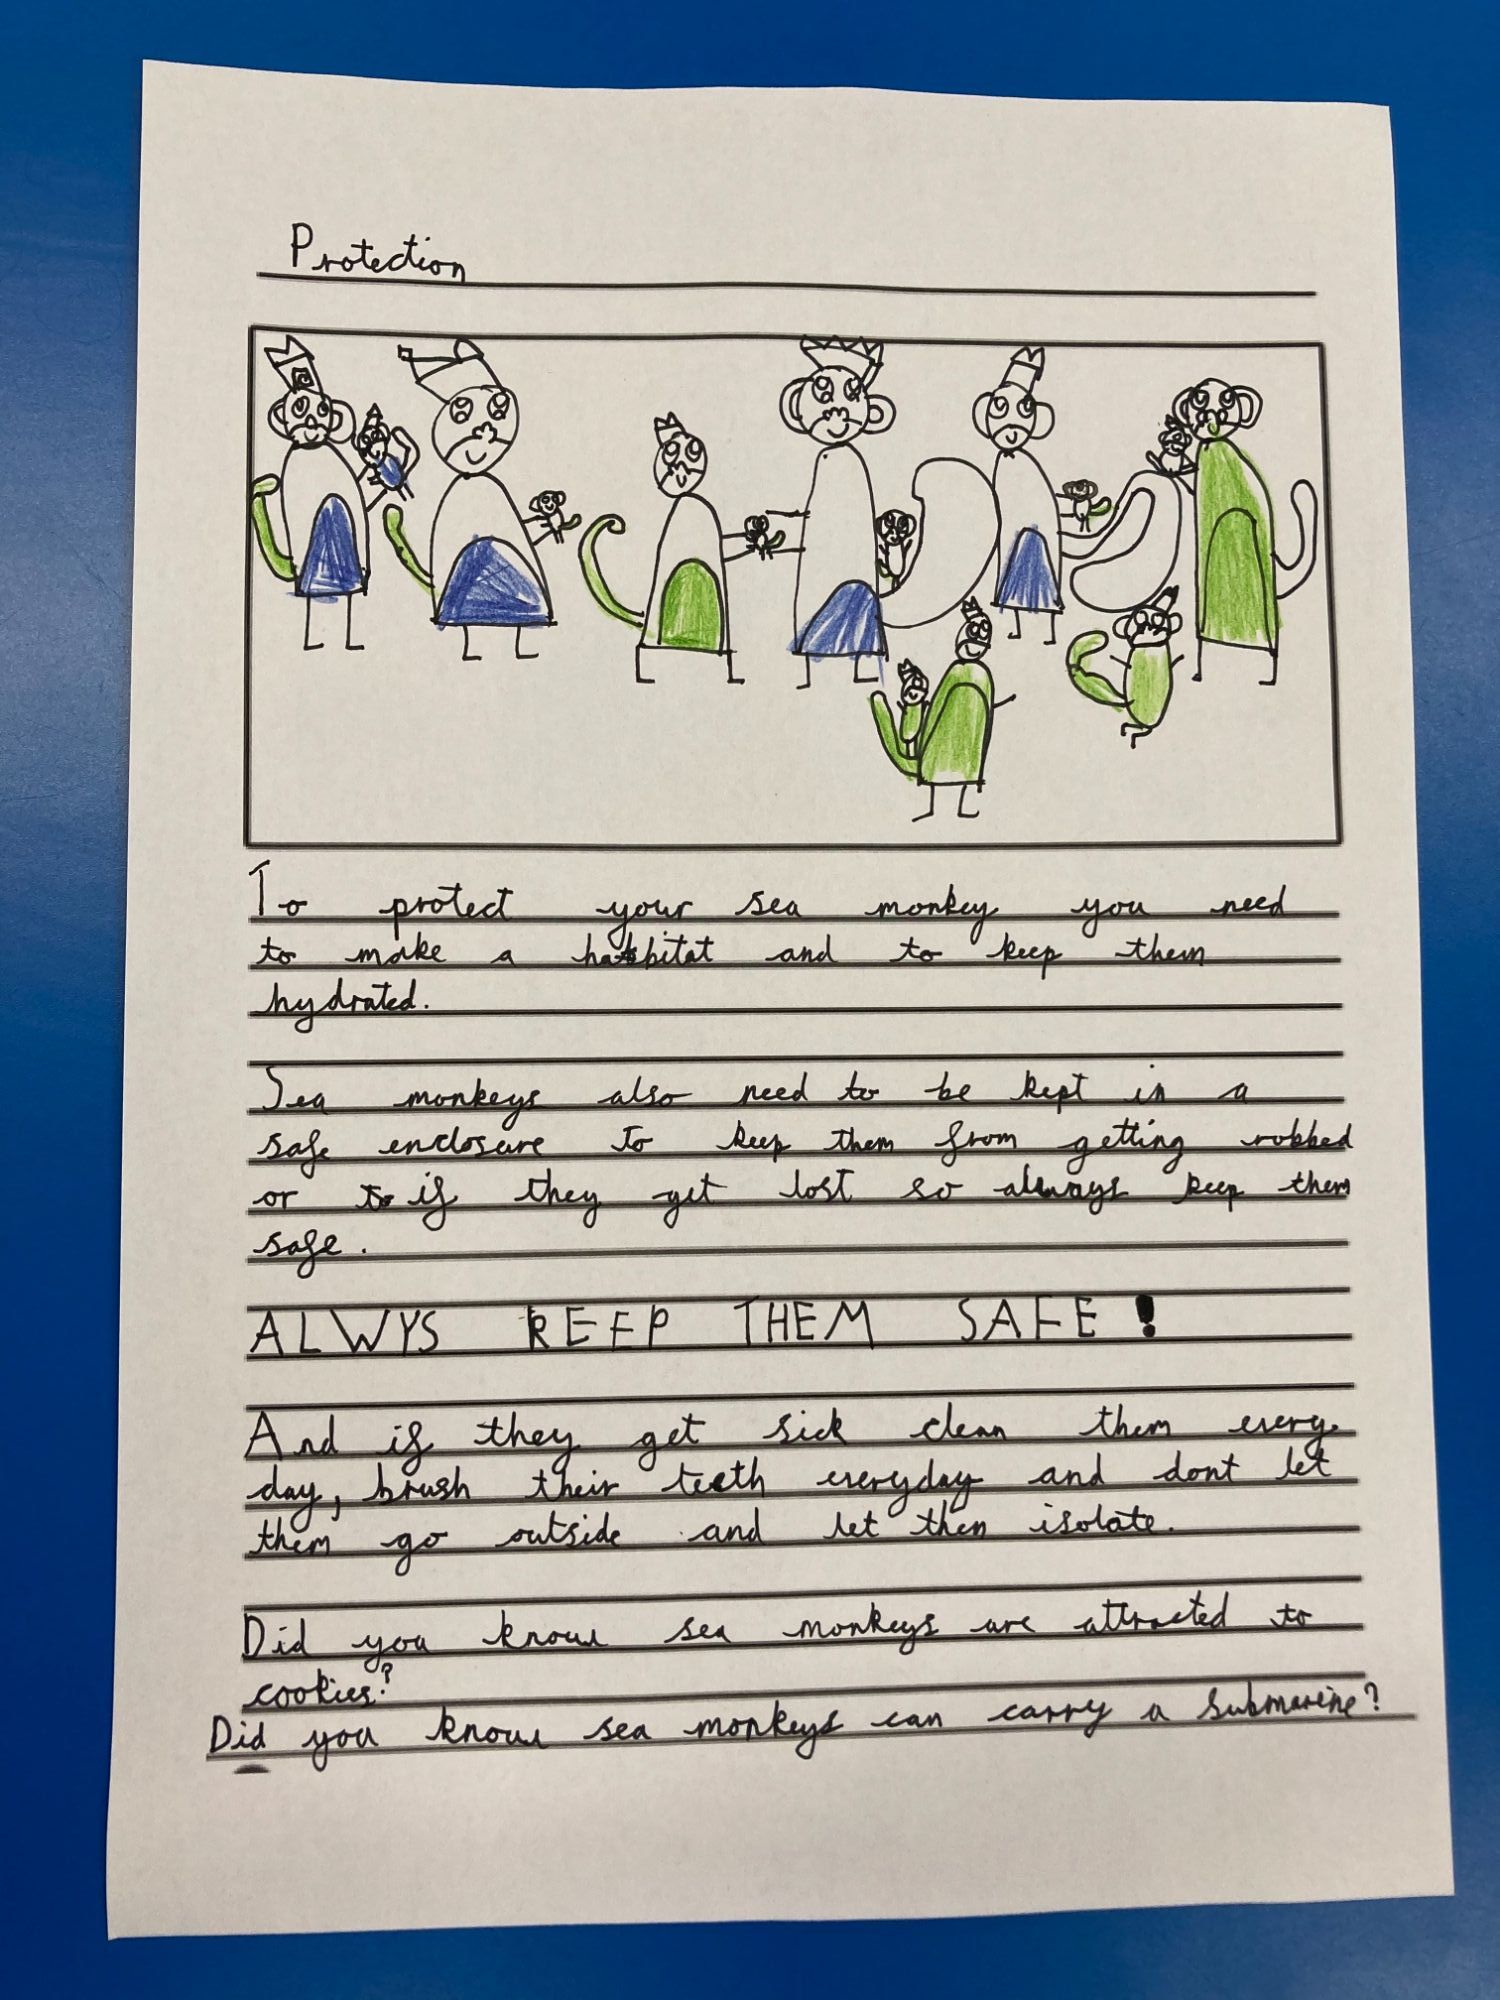 Protection
To protect your sea monkey you need
to make a habitat and to keep them
hydrated.
Sea monkeys also need to be kept in a
safe enclosure to keep them from getting robbed
or to if they get lost so always keep them
safe.
ALWYS KEEP THEM SAFE!
And if they get sick clean them every
day, brush their teeth everyday and dont let
them go outside and let then isolate.
Did you know sea monkeys are attracted to
cookies?
Did you know sea monkeys can carry a submarine?